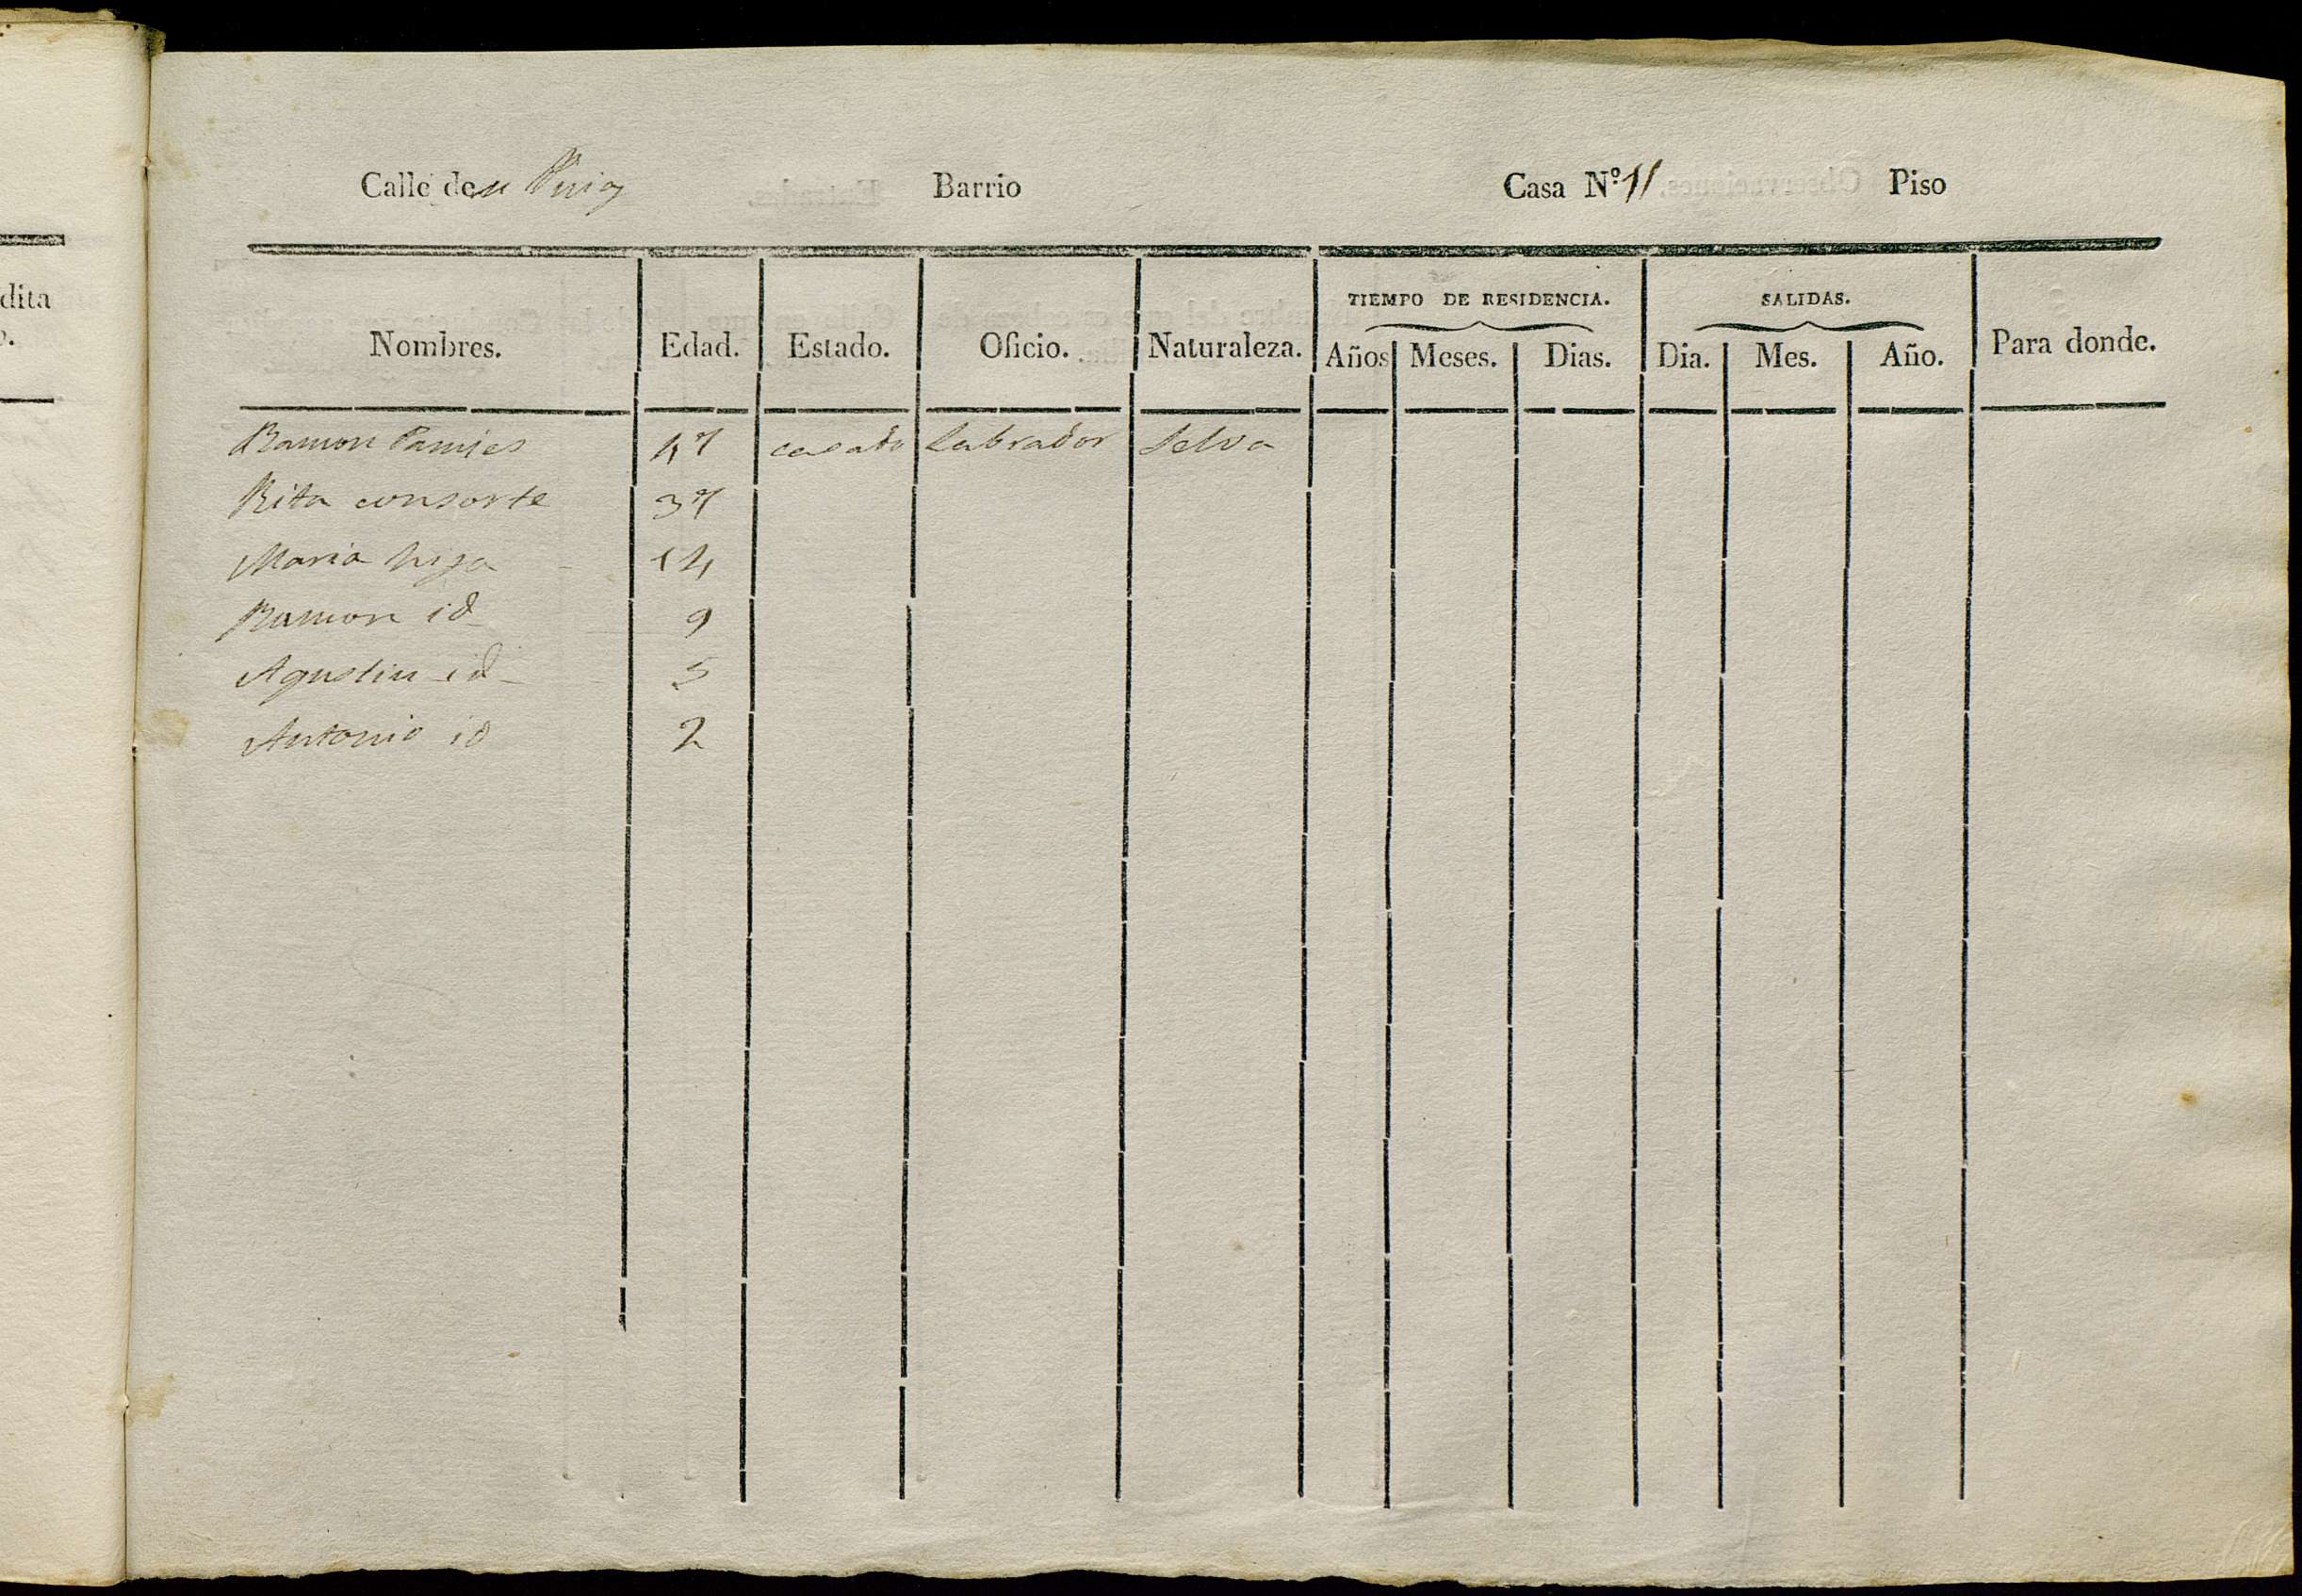 dita
o.
Calle den Puig Barrio Casa Nº 11 Piso
TIEMPO DE RESIDENCIA. SALIDAS.
Nombres. Edad. Estado. Oficio. Naturaleza. Años Meses. Dias. Dia. Mes. Año. Para donde.
Ramon Pamies 47 casado Labrador Selva
Rita consorte 37
Maria hija 14
Ramon id 9
Agustin id 5
Antonio id 2